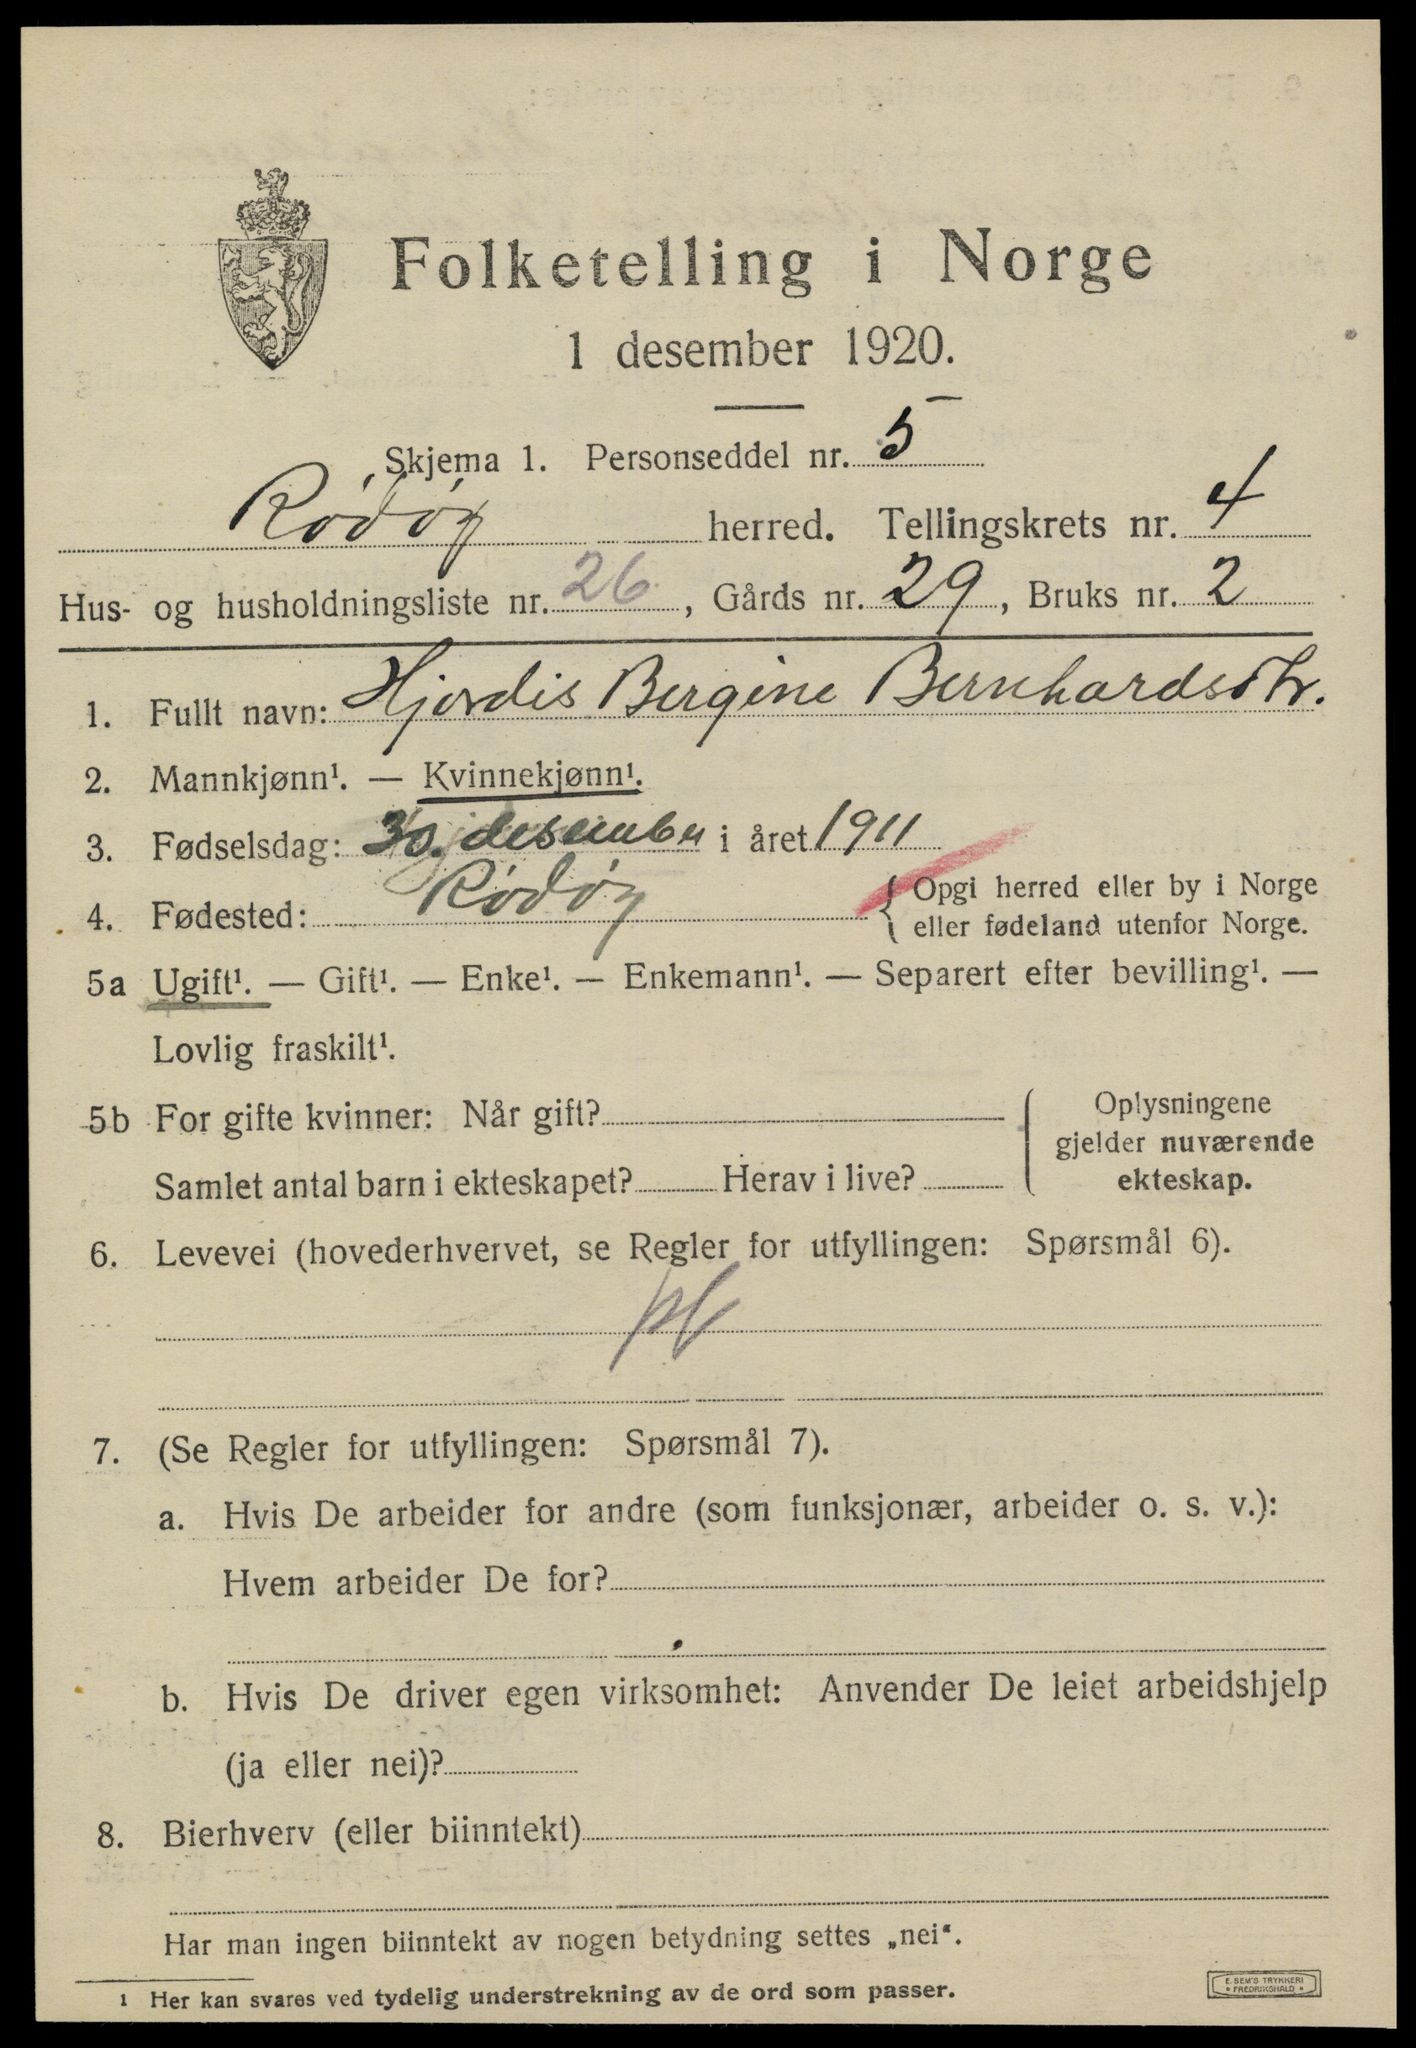 Folketelling i Norge
1 desember 1920.
Skjema 1. Personseddel nr. 5
Rödöy herred. Tellingskrets nr. 4
Hus- og husholdningsliste nr. 26, Gårds nr. 29, Bruks nr. 2
1. Fullt navn: Hjordis Bergine Bernhardsdtr.
2. Mannkjønn¹. — Kvinnekjønn¹.
3. Fødselsdag: 30. desember i året 1911
4. Fødested: Rödöy { Opgi herred eller by i Norge
eller fødeland utenfor Norge.
5a Ugift¹. — Gift¹. — Enke¹. — Enkemann¹. — Separert efter bevilling¹. —
Lovlig fraskilt¹.
5b For gifte kvinner: Når gift?
Samlet antal barn i ekteskapet? Herav i live?
Oplysningene
gjelder nuværende
ekteskap.
6. Levevei (hovederhvervet, se Regler for utfyllingen: Spørsmål 6).
7. (Se Regler for utfyllingen: Spørsmål 7).
a. Hvis De arbeider for andre (som funksjonær, arbeider o. s. v.):
Hvem arbeider De for?
b. Hvis De driver egen virksomhet: Anvender De leiet arbeidshjelp
(ja eller nei)?
8. Bierhverv (eller biinntekt)
Har man ingen biinntekt av nogen betydning settes „nei“.
1 Her kan svares ved tydelig understrekning av de ord som passer.
E. SEM'S TRYKKERI
* FREDRIKSHALD *